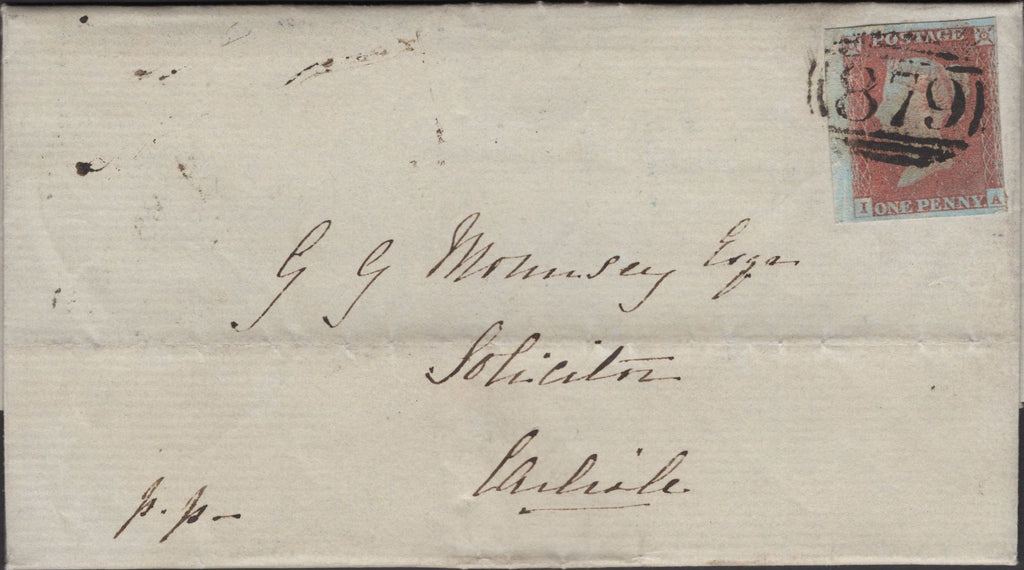 POSTAGE
879
I ONE PENNY A
G G Mounsey Esqr
Solicitor
Carlisle
p.p-